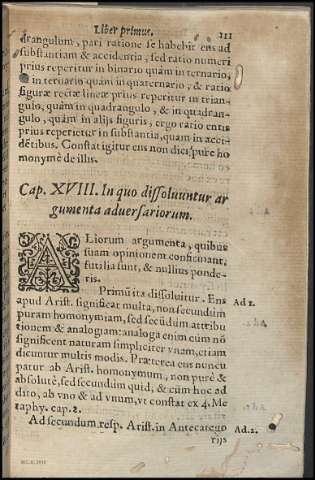 Liber primus. 111
drangulum, pari ratione se habebit ens ad
substantiam & accidentia, sed ratio numeri
prius reperitur in binario quàm in ternario,
& in ternario quàm in quaternario, & ratio
figuræ rectæ lineæ prius reperitur in trian-
gulo, quàm in quadrangulo, & in quadran-
gulo, quàm in alijs figuris, ergo ratio entis
prius reperietur in substantia, quàm in acci-
dētibus. Constat igitur ens non dici pure ho
monymè de illis.
Cap. XVIII. In quo dissoluuntur ar
gumenta aduersariorum.
ALiorum argumenta, quibus
suam opinionem confirmant,
futilia sunt, & nullius ponde-
ris.
Primū ita dissoluitur. Ens Ad 1.
apud Arist. significat multa, non secundùm
puram homonymiam, sed secūdùm attribu
tionem & analogiam: analoga enim cùm nō
significent naturam simpliciter vnam, etiam
dicuntur multis modis. Præterea ens nuncu
patur ab Arist. homonymum, non purè &
absolutè, sed secundùm quid, & cùm hoc ad
dito, ab vno & ad vnum, vt constat ex 4. Me
taphy. cap. 2.
Ad secundum resp. Arist. in Antecatego Ad. 2.
rijs